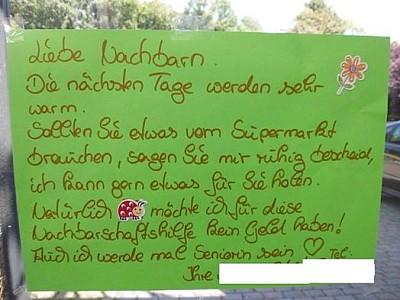 Liebe Nachbarn.
Die nächsten Tage werden sehr
warm.
Sollten Sie etwas vom Supermarkt
brauchen, sagen Sie mir ruhig bescheid,
ich kann gern etwas für Sie holen.
Natürlich möchte ich für diese
Nachbarschaftshilfe kein Geld haben!
Auch ich werde mal Seniorin sein ♡ Tel:
Ihre